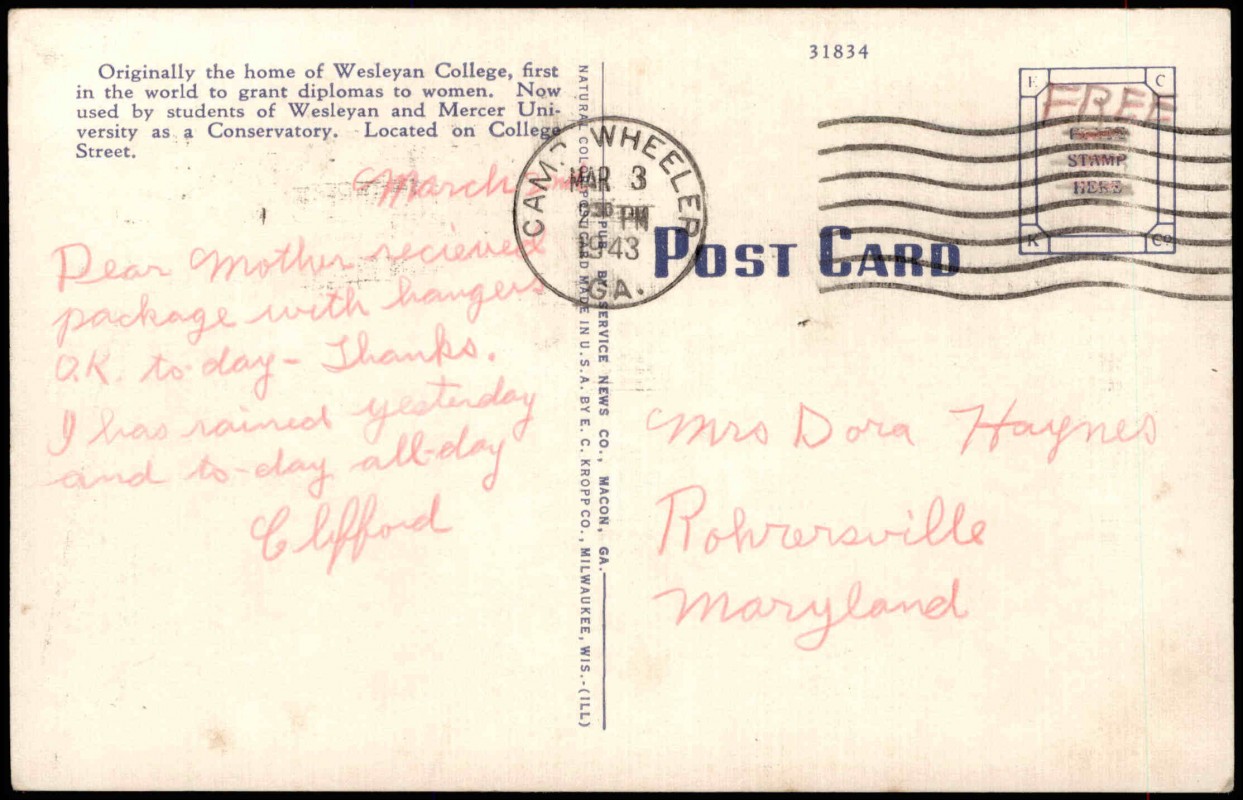 Originally the home of Wesleyan College, first
in the world to grant diplomas to women. Now
used by students of Wesleyan and Mercer Uni-
versity as a Conservatory. Located on College
Street.
March
Dear Mother recieved
package with hangers
O.K. to-day - Thanks.
I has rained yesterday
and to-day all-day
Clifford
NATURAL COLOR POST CARD MADE IN U.S.A. BY E. C. KROPP CO., MILWAUKEE, WIS.-(ILL)
PUB. BY SERVICE NEWS CO., MACON, GA.
CAMP WHEELER
MAR 3
PM
1943
GA.
31834
E C
FREE
STAMP
HERE
K Co
POST CARD
Mrs Dora Haynes
Rohrersville
Maryland